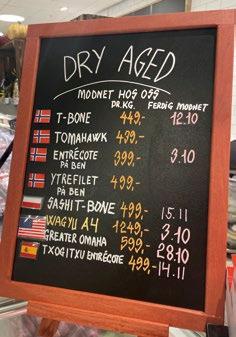 DRY AGED
MODNET HOS OSS
PR.KG. FERDIG MODNET
T-BONE 449,- 12.10
TOMAHAWK 499,-
ENTRÈCOTE 399,- 3.10
PÅ BEN
YTREFILET 499,-
PÅ BEN
SASHIT-BONE 499,- 15.11
WAGYU A4 1249,- 3.10
GREATER OMAHA 599,- 28.10
TXOGITXU ENTRÈCOTE 499,- 14.11